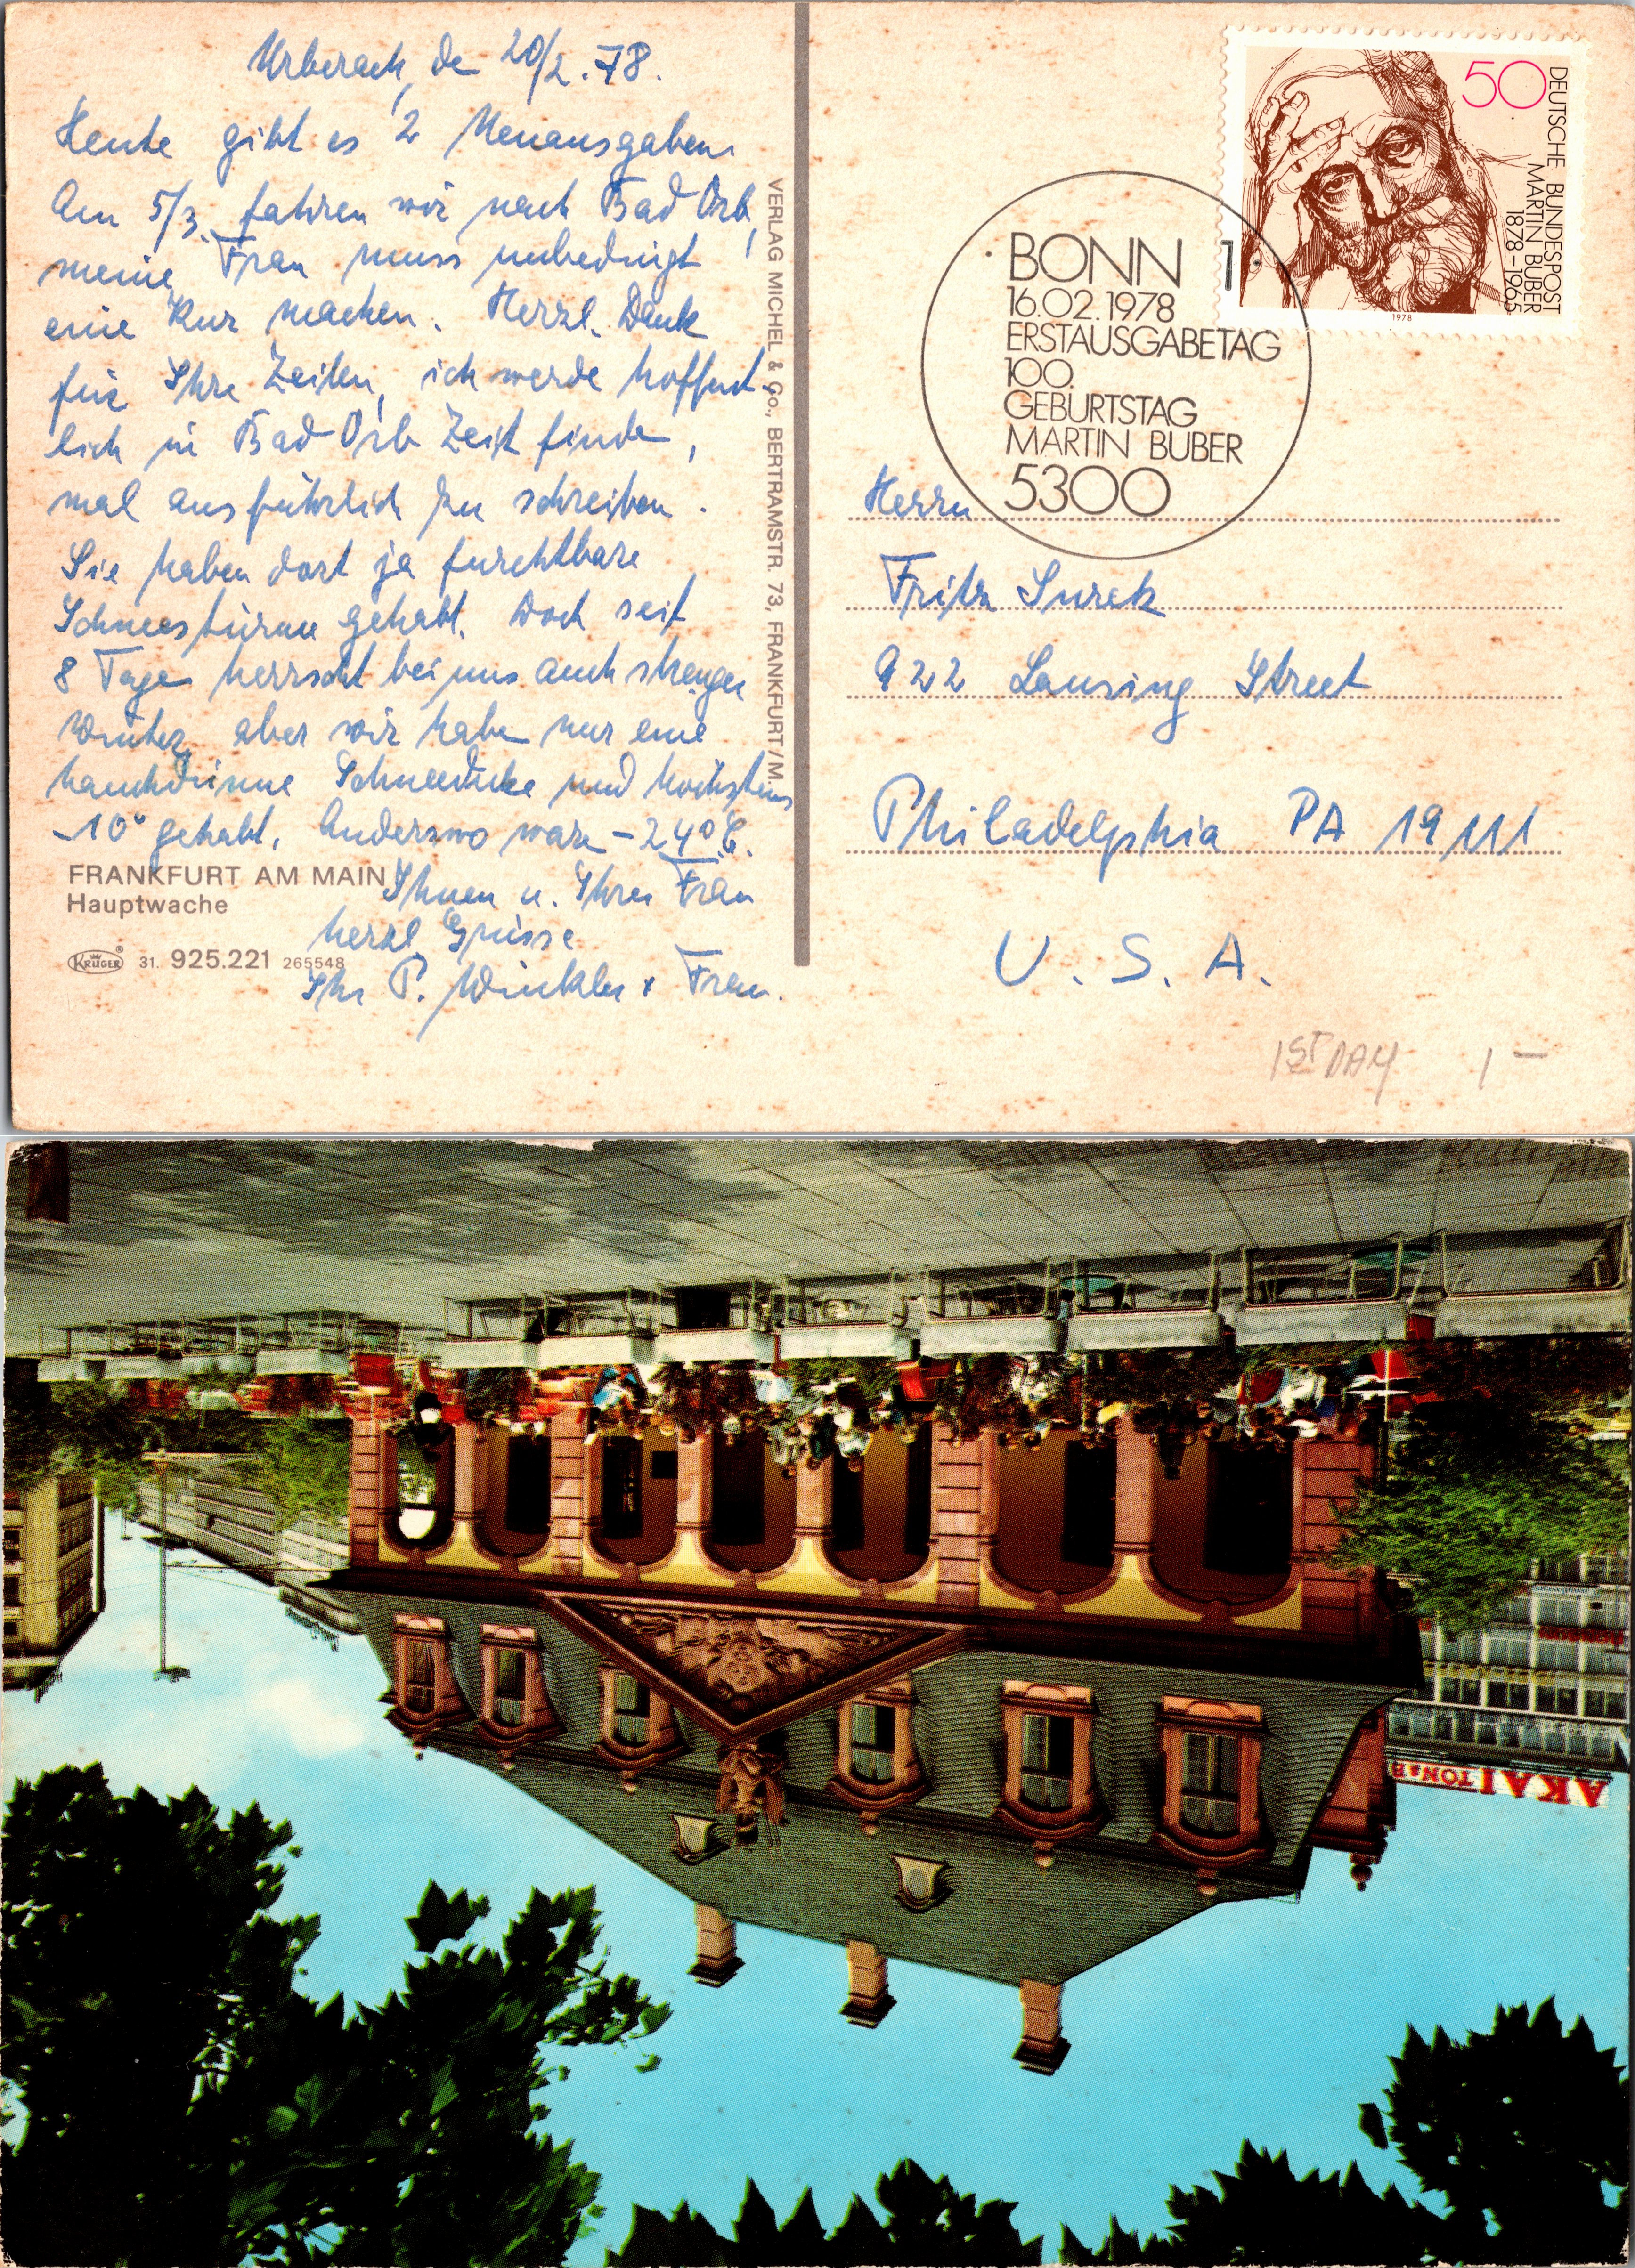 Urberach, de 20/2.78.
Heute gibt es 2 Neuausgaben
Am 5/3. fahren wir nach Bad Orb,
meine Frau muss unbedingt
eine Kur machen. Herzl. Dank
für Ihre Zeilen, ich werde hoffent-
lich in Bad Orb Zeit finden,
mal ausführlich zu schreiben.
Sie haben dort ja furchtbare
Schneestürme gehabt. Doch seit
8 Tagen herrscht bei uns auch strenger
Winter, aber wir haben nur eine
hauchdünne Schneedecke und höchstens
-10° gehabt. Anderswo waren -24° C.
Ihnen u. Ihrer Frau
herzl. Grüsse
Ihr P. Winkler + Frau.
FRANKFURT AM MAIN
Hauptwache
KRÜGER ® 31. 925.221 265548
VERLAG MICHEL & Co., BERTRAMSTR. 73, FRANKFURT/M.
50
DEUTSCHE BUNDESPOST
MARTIN BUBER
1878-1965
1978
BONN 1
16.02.1978
ERSTAUSGABETAG
100.
GEBURTSTAG
MARTIN BUBER
5300
Herrn
Fritz Surek
922 Lansing Street
Philadelphia PA 19111
U.S.A.
1ST DAY 1-
AKAI TON&B